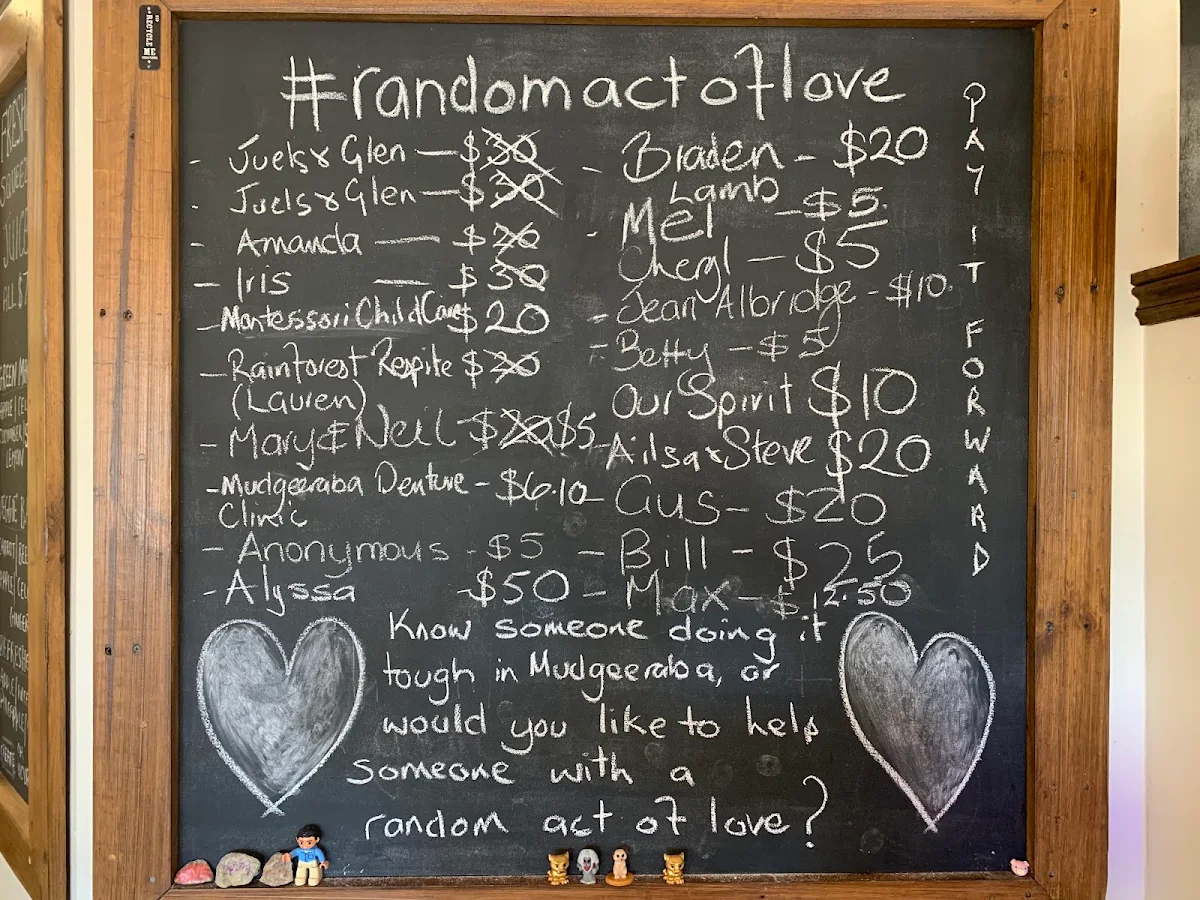 RECYCLE
ME
#randomactoflove
- Juels & Glen — $30
- Juels & Glen — $30
- Amanda — $20
- Iris — $30
- Montessori ChildCare $20
- Rainforest Respite $20
(Lauren)
- Mary & Neil - $20 $5
- Mudgeeraba Denture - $6.10
Clinic
- Anonymous - $5
- Alyssa - $50
- Braden - $20
Lamb
- Mel - $5.
Cheryl - $5
- Jean Albridge - $10.
- Betty - $5
Our Spirit $10
- Ailsa & Steve $20
- Gus - $20
- Bill - $25
- Max - $12.50
PAY IT FORWARD
Know someone doing it
tough in Mudgeeraba, or
would you like to help
someone with a
random act of love?
FRESH
JUICE
ALL $7
LEMON